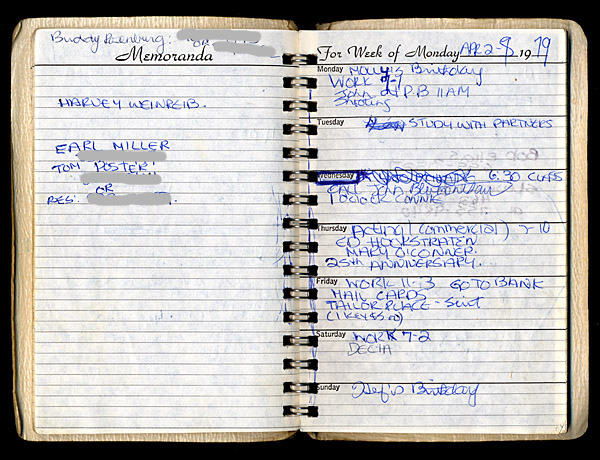 Buddy Rosenburg:
OR
Memoranda
HARVEY WEINREIB.
EARL MILLER
TOM POSTER!
OR
RES.
For Week of Monday APR 2-8, 1979
Monday Molly's Birthday
WORK 9-1
John at P.B 11AM
Shooting
Tuesday STUDY WITH PARTNERS
Wednesday 6:30 CUFS
CALL
1 OCLOCK CONNIE
Thursday Acting (commercial) 7-10
ED HOOKSTRATEN
MARY O'CONNER.
25th ANNIVERSARY.
Friday WORK 11-3 GO TO BANK
MAIL CARDS
TAILOR PLACE - Suit
(1 KEYES RD)
Saturday WORK 7-2
DECIA
Sunday Hef's Birthday